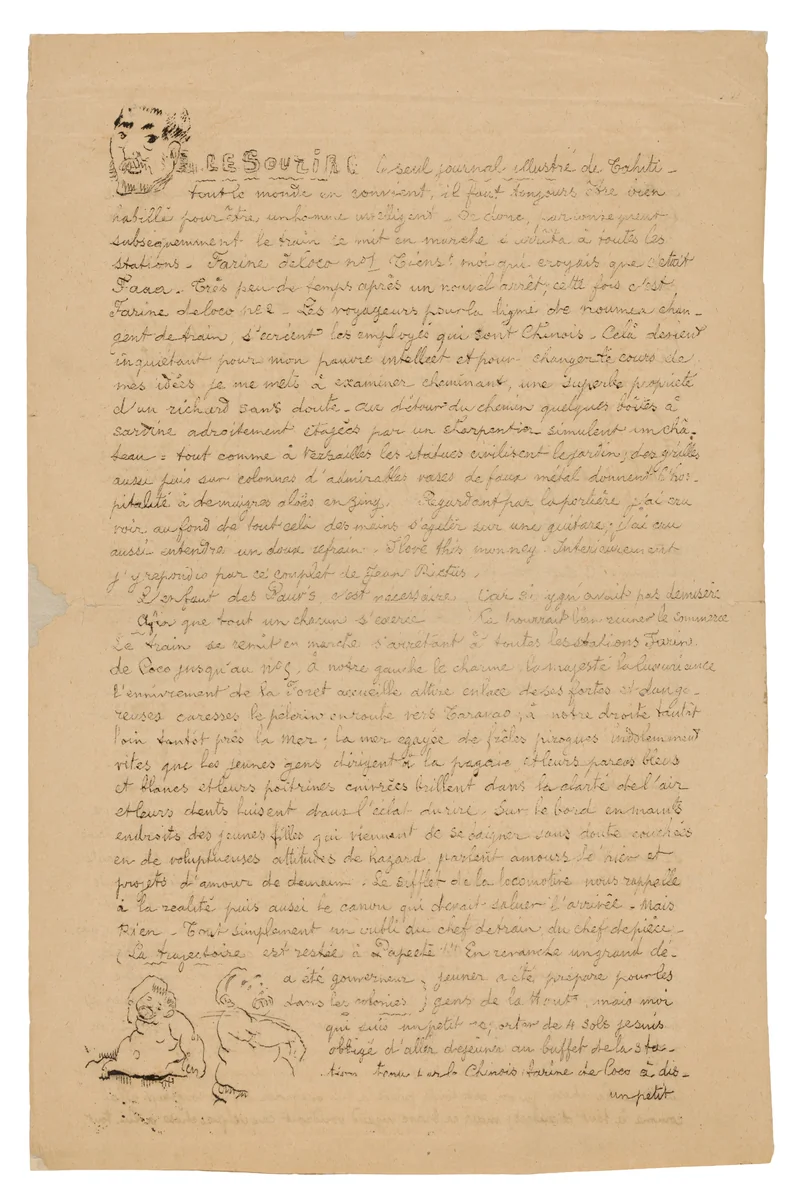 LE SOURIRE le seul journal illustré de Tahiti -
Tout le monde en convient, il faut toujours être bien
habillé pour être un homme intelligent - 
subséquemment le train se mit en marche s'arrêta à toutes les
stations - Farine de coco no 1 Tiens! moi qui croyais que c'était
Faaa - Très peu de temps après un nouvel arrêt, cette fois c'est
Farine de coco no 2 - Les voyageurs pour la ligne de noumea chan-
gent de train, s'écrient les employés qui sont Chinois - Celà devient
inquiétant pour mon pauvre intellect et pour changer le cours de
mes idées je me mets à examiner cheminant, une superbe propriété
d'un richard sans doute - au détour du chemin quelques boîtes à
sardine adroitement étagées par un charpentier simulent un châ-
teau = tout comme à Versailles les statues civilisent le jardin; des grilles
aussi puis sur colonnes d'admirables vases de faux métal donnent l'hos-
pitalité à de maigres aloès en zing. Regardant par la portière j'ai cru
voir au fond de tout celà des mains s'agiter sur une guitare; j'ai cru
aussi entendre un doux refrain - I love this monney. Intérieurement
j'y repondis par ce couplet de Jean Rictus.
L'enfant des Pauv's c'est necessaire Car si yen avait pas de misère
Afin que tout un chacun s'exerce Ca pourrait bien ruiner le commerce
Le train se remit en marche s'arrêtant à toutes les stations Farine
de Coco jusqu'au no 5, à notre gauche le charme, la majesté la luxuriance
l'ennivrement de la Foret accueille attire enlace de ses fortes et dange-
reuses caresses le pelerin en route vers Taravao; à notre droite tantôt
loin tantôt près la mer; la mer egayée de frêles pirogues indolemment
vites que les jeunes gens dirigent à la pagaie et leurs pareos bleus
et blancs et leurs poitrines cuivrées brillent dans la clarté de l'air
et leurs dents luisent dans l'éclat du rire. Sur le bord en maints
endroits des jeunes filles qui viennent de se baigner sans doute couchées
en de voluptueuses attitudes de hazard, parlent amours d'hier et
projets d'amour de demain. Le sifflet de la locomotive nous rappelle
à la realité puis aussi le canon qui devait saluer l'arrivée - Mais
Rien - Tout simplement un oubli du chef de train, du chef de pièce -
(La trajectoire est restée à Papeete !!) En revanche un grand dé-
a été gouverneur jeuner a été préparé pour les
dans les colonies) gens de la Haut, mais moi
qui suis un petit reporter de 4 sols je suis
obligé d'aller dejeuner au buffet de la sta-
tion tenu par le Chinois farine de Coco à dis-
un petit